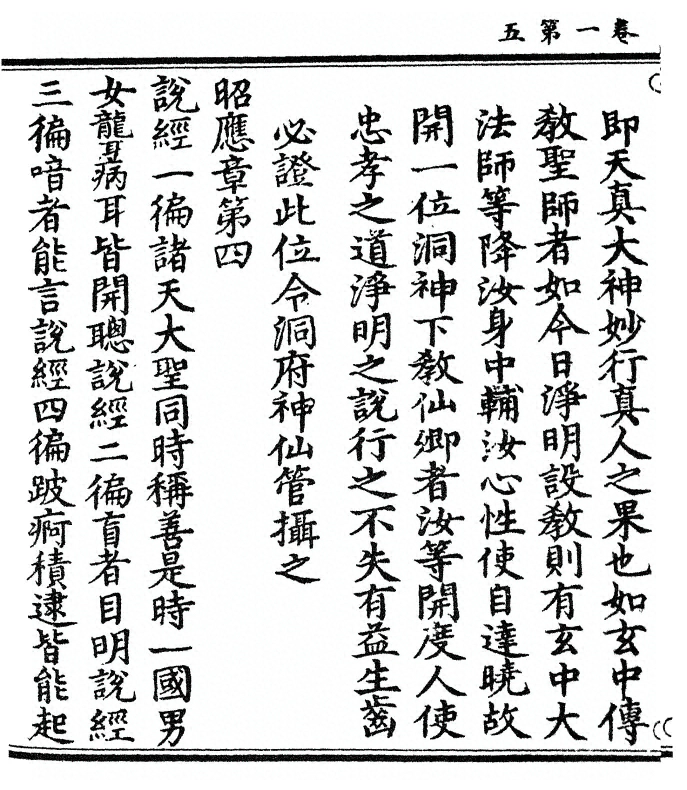 卷一第五
即天真大神妙行真人之果也如玄中傳
教聖師者如今日淨明設教則有玄中大
法師等降汝身中輔汝心性使自達曉故
開一位洞神下教仙卿者汝等開度人使
忠孝之道淨明之說行之不失有益生齒
必證此位令洞府神仙管攝之
昭應章第四
說經一徧諸天大聖同時稱善是時一國男
女聾病耳皆開聰說經二徧盲者目明說經
三徧喑者能言說經四徧跛痾積逮皆能起